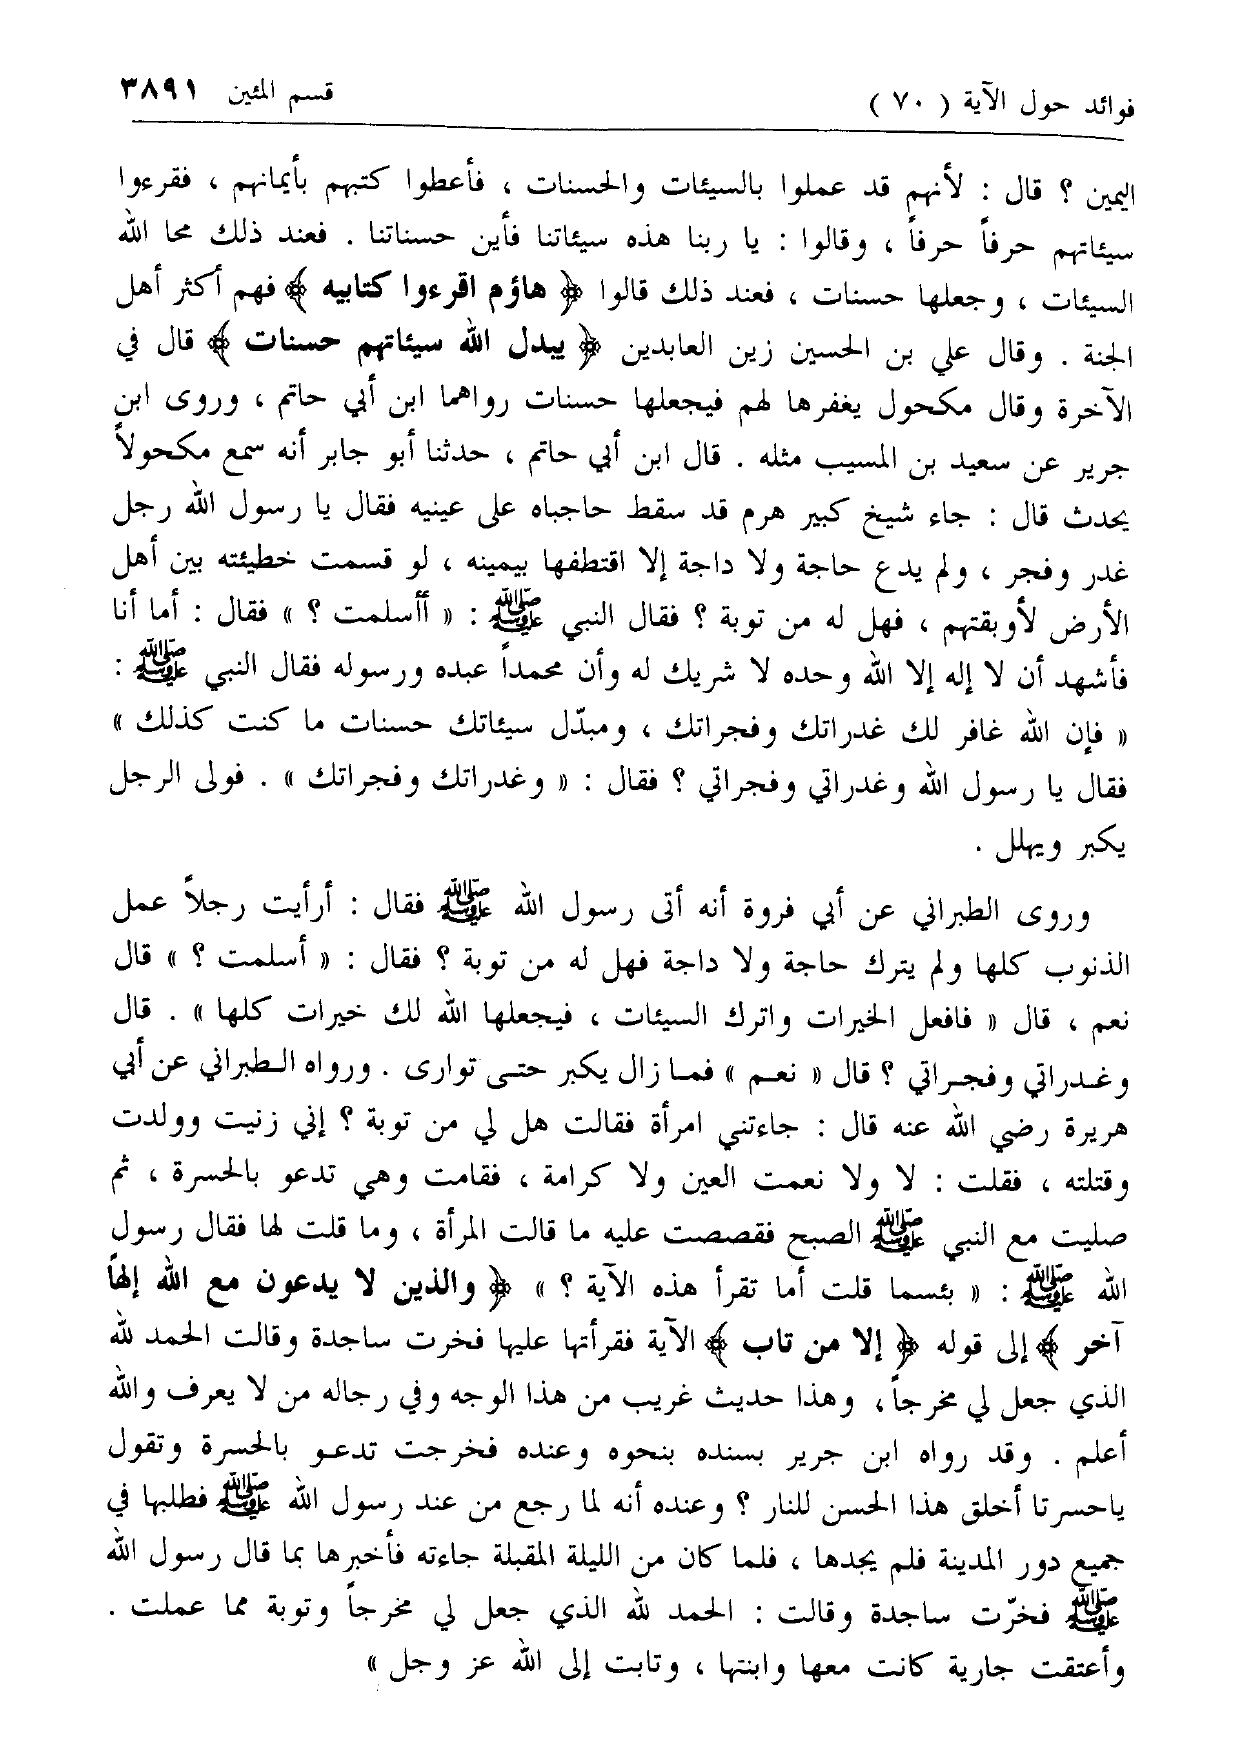 فوائد حول الآية ( ٧٠ ) قسم المئين ٣٨٩١
اليمين ؟ قال : لأنهم قد عملوا بالسيئات والحسنات ، فأعطوا كتبهم بأيمانهم ، فقرءوا
سيئاتهم حرفاً حرفاً ، وقالوا : يا ربنا هذه سيئاتنا فأين حسناتنا . فعند ذلك محا الله
السيئات ، وجعلها حسنات ، فعند ذلك قالوا ﴿ هاؤم اقرءوا كتابيه ﴾ فهم أكثر أهل
الجنة . وقال علي بن الحسين زين العابدين ﴿ يبدل الله سيئاتهم حسنات ﴾ قال في
الآخرة وقال مكحول يغفرها لهم فيجعلها حسنات رواهما ابن أبي حاتم ، وروى ابن
جرير عن سعيد بن المسيب مثله . قال ابن أبي حاتم ، حدثنا أبو جابر أنه سمع مكحولاً
يحدث قال : جاء شيخ كبير هرم قد سقط حاجباه على عينيه فقال يا رسول الله رجل
غدر وفجر ، ولم يدع حاجة ولا داجة إلا اقتطفها بيمينه ، لو قسمت خطيئته بين أهل
الأرض لأوبقتهم ، فهل له من توبة ؟ فقال النبي ﷺ : « أأسلمت ؟ » فقال : أما أنا
فأشهد أن لا إله إلا الله وحده لا شريك له وأن محمداً عبده ورسوله فقال النبي ﷺ :
« فإن الله غافر لك غدراتك وفجراتك ، ومبدّل سيئاتك حسنات ما كنت كذلك »
فقال يا رسول الله وغدراتي وفجراتي ؟ فقال : « وغدراتك وفجراتك » . فولى الرجل
يكبر ويهلل .
وروى الطبراني عن أبي فروة أنه أتى رسول الله ﷺ فقال : أرأيت رجلاً عمل
الذنوب كلها ولم يترك حاجة ولا داجة فهل له من توبة ؟ فقال : « أسلمت ؟ » قال
نعم ، قال « فافعل الخيرات واترك السيئات ، فيجعلها الله لك خيرات كلها » . قال
وغدراتي وفجراتي ؟ قال « نعم » فما زال يكبر حتى توارى . ورواه الطبراني عن أبي
هريرة رضي الله عنه قال : جاءتني امرأة فقالت هل لي من توبة ؟ إني زنيت وولدت
وقتلته ، فقلت : لا ولا نعمت العين ولا كرامة ، فقامت وهي تدعو بالحسرة ، ثم
صليت مع النبي ﷺ الصبح فقصصت عليه ما قالت المرأة ، وما قلت لها فقال رسول
الله ﷺ : « بئسما قلت أما تقرأ هذه الآية ؟ » ﴿ والذين لا يدعون مع الله إلهاً
آخر ﴾ إلى قوله ﴿ إلا من تاب ﴾ الآية فقرأتها عليها فخرت ساجدة وقالت الحمد لله
الذي جعل لي مخرجاً ، وهذا حديث غريب من هذا الوجه وفي رجاله من لا يعرف والله
أعلم . وقد رواه ابن جرير بسنده بنحوه وعنده فخرجت تدعو بالحسرة وتقول
ياحسرتا أخلق هذا الحسن للنار ؟ وعنده أنه لما رجع من عند رسول الله ﷺ فطلبها في
جميع دور المدينة فلم يجدها ، فلما كان من الليلة المقبلة جاءته فأخبرها بما قال رسول الله
ﷺ فخرّت ساجدة وقالت : الحمد لله الذي جعل لي مخرجاً وتوبة مما عملت .
وأعتقت جارية كانت معها وابنتها ، وتابت إلى الله عز وجل »